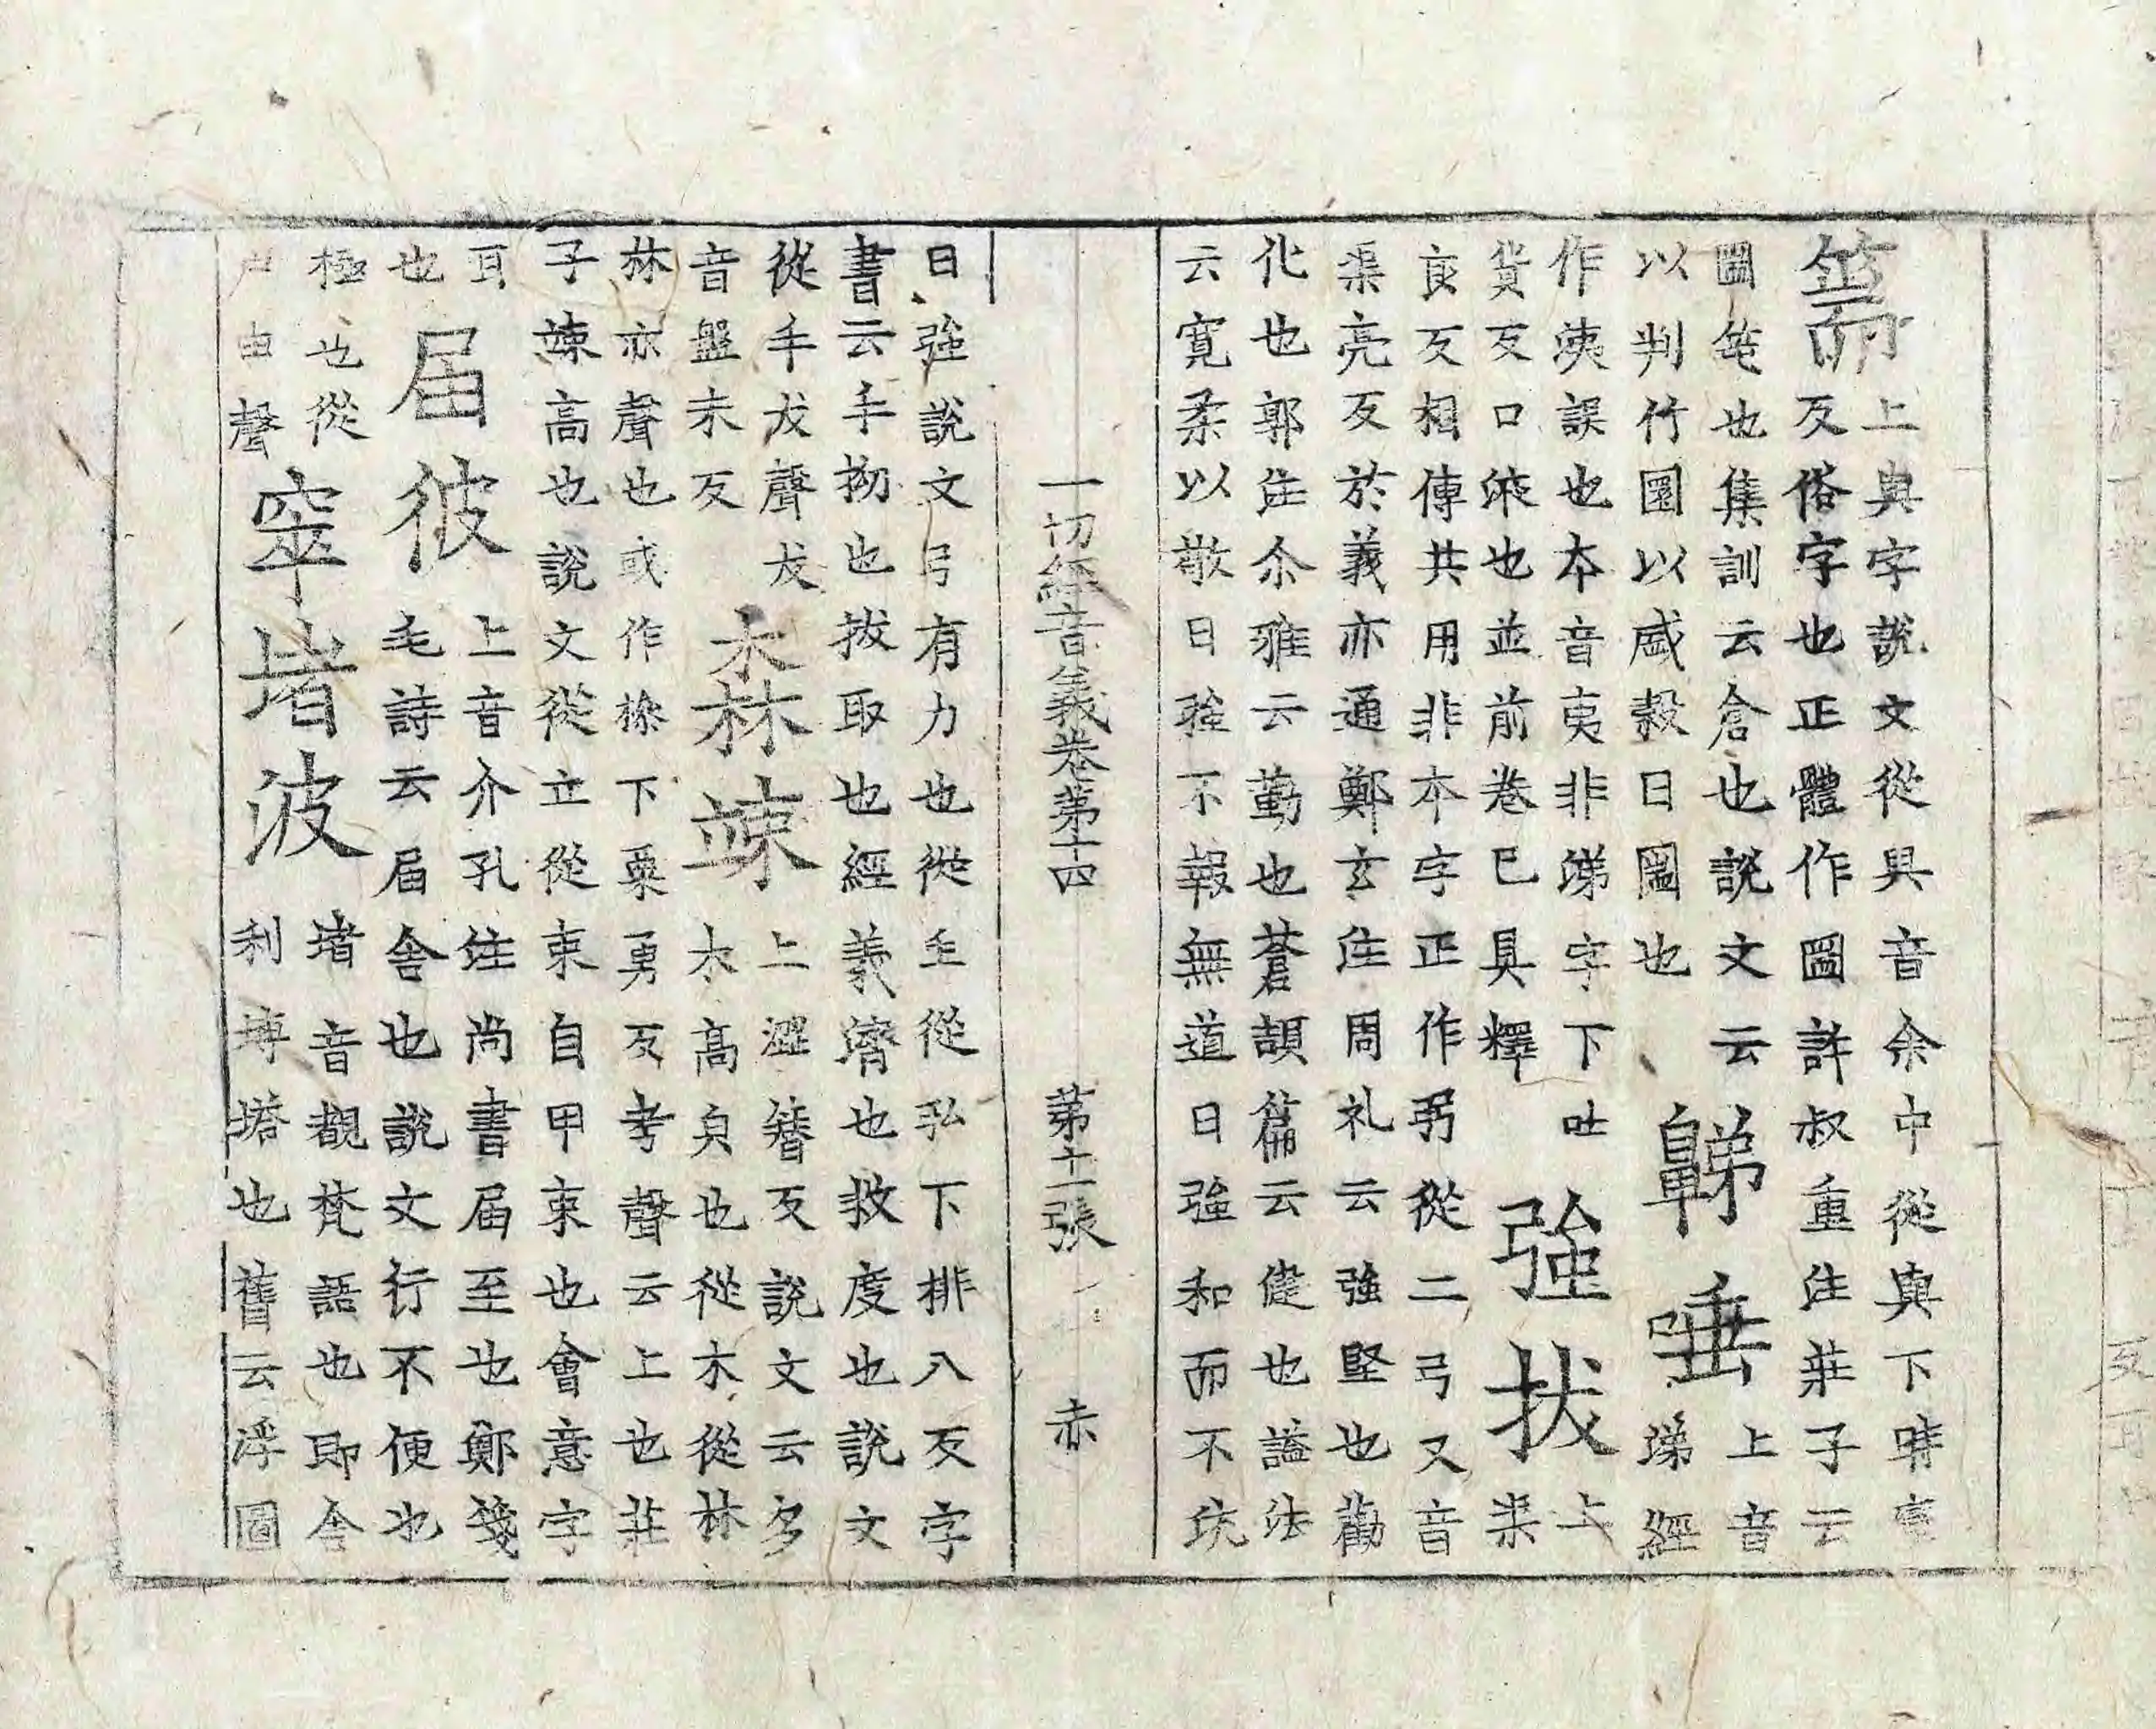 篅上輿字說文從與音余中從輿下時專
反俗字也正體作圌許叔重注莊子云
圌笔也集訓云倉也說文云
以判竹圜以盛穀曰圌也
䶏唾上音
涕經
作洟誤也本音夷非涕字下吐
貨反口液也並前卷已具釋
強拔上
渠
良反相傳共用非本字正作弜從二弓又音
渠亮反於義亦通鄭玄注周礼云強堅也勸
化也郭注尒雅云勤也蒼頡篇云健也謚法
云寬柔以教曰強不報無道曰強和而不㳅
一切經音義卷第十四 第十二張 赤
曰強說文弓有力也從主從弘下排八反字
書云手拗也拔取也經義濟也救度也說文
從手犮聲犮
音盤末反
森竦上澀簪反說文云多
木高皃也從木從林
林亦聲也或作槮下粟勇反考聲云上也莊
子竦高也說文從立從束自申束也會意字
耳
也
届彼上音介孔注尚書届至也鄭箋
毛詩云届舍也說文行不便也
極也從
尸由聲
窣堵波堵音覩梵語也即舍
利塼塔也舊云浮圖